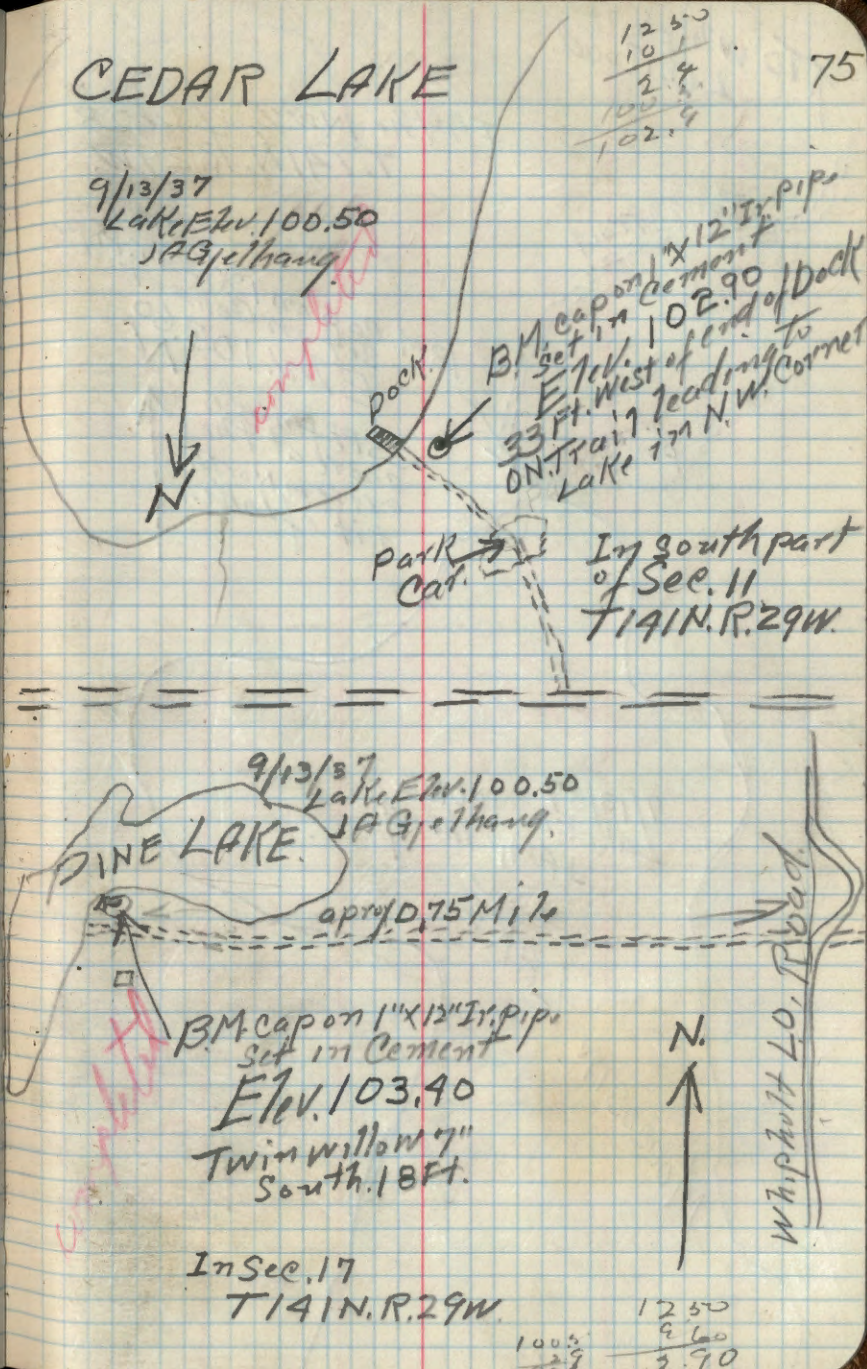 75
CEDAR LAKE
1250
101
2 4
100.5
102.9
9/13/37
Lake Elev. 100.50
completed
B.M. cap on 1"X12" Ir. pipe
set in Cement
Elev. 102.90
33 Ft. West of end of Dock
ON Trail leading To
Lake in N.W. Corner
Dock
N
Park
Car.
In South part
of Sec. 11
T141N. R. 29W.
9/13/37
Lake Elev. 100.50
PINE LAKE.
0.75 Mile
Road.
B.M. cap on 1"X12" Ir. pipe
Set in Cement
Elev. 103.40
Twin willow 7"
South. 18 Ft.
completed
N.
In Sec. 17
T141N. R. 29W
1250
960
2.90
100.5
2.9